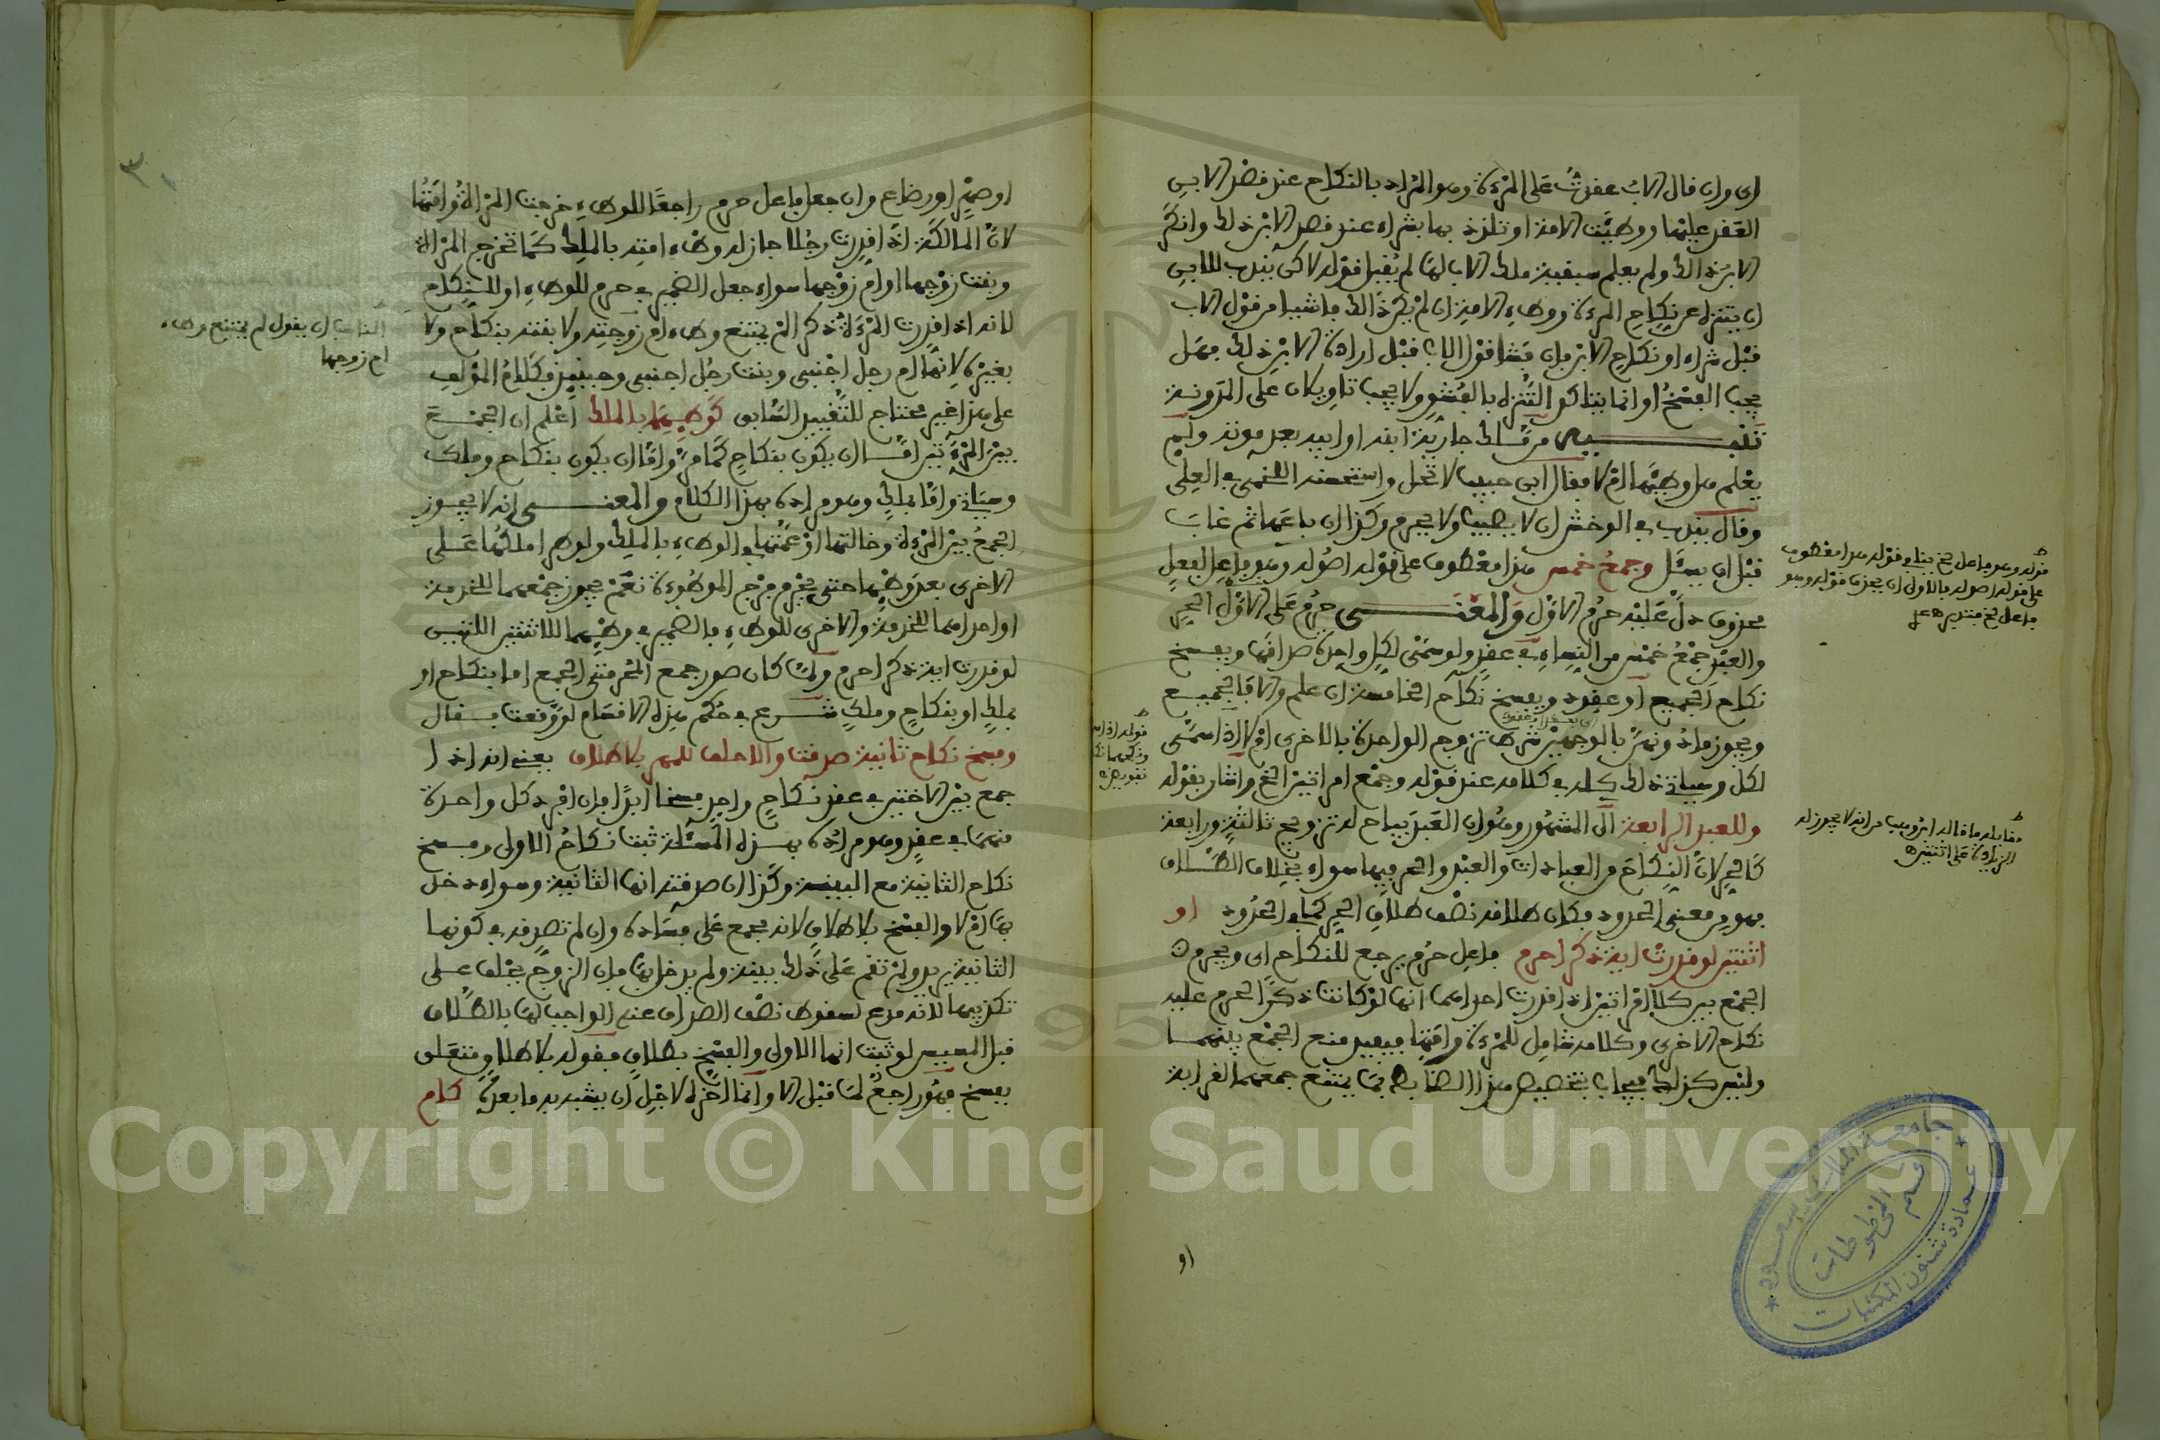 اي وان قال الاب عقدت على المرءة وهو المراد بالنكاح عند قصد الابن
العقد عليها ووطيت الامة او تلذذ بها بشراء عند قصد الابن ذلك وانكر
الابن ذالك ولم يعلم سبقية ملك الاب لها لم يقبل قوله لاكن يندب للابن
ان يتنزه عن نكاح المرءة ووطء الامة ان لم يكن ذالك فاشيا من قول الاب
قبل شراء او نكاح الابن فان فشا قول الاب قبل ارادة الابن ذلك فهل
يجب الفسخ او انما يتاكد التنزه بالفشو ولا يجب تاويلان على المدونة
تنبيه من ملك جارية ابنه او ابيه بعد موته ولم
يعلم هل وطيها ام لا فقال ابن حبيب لا تحل واستحسنه اللخمي في العلي
وقال يندب في الوخش ان لا يصيب ولا يحرم وكذا ان باعها ثم غاب
قبل ان يسئل وجمع خمس هذا معطوف على قوله اصوله وهو فاعل لفعل
محذوف دل عليه حرم الاول والمعنى حرم على الاول الحر
والعبد جمع خمس من النساء في عقد ولو سمى لكل واحدة صداقها ويفسخ
نكاح الجميع او عقود ويفسخ نكاح الخامسة ان علم والا فالجميع
ويجوز ماد ونهن بالوجهين شرط تزوج الواحدة بالاخرى ام لا اذا سمى
لكل وسياتي ذلك كله في كلامه عند قوله وجمع امراتين الخ واشار بقوله
وللعبد الرابعة الى المشهور وهو ان العبد يباح له تزويج ثالثة ورابعة
كالحر لان النكاح من العبادات والعبد والحر فيها سواء بخلاف الطلاق
فهو من معنى الحدود فكان طلاقه نصف طلاق الحر كما في الحدود او
اثنتين لو قدرت اية ذكرا حرم فاعل حرم يرجع للنكاح اي ويحرم
الجمع بين كل امراتين اذا قدرت احداهما انها لو كانت ذكرا لحرم عليه
نكاح الاخرى وكلامه شامل للمرءة وامتها فيفيد منع الجمع بينهما
وليس كذلك فيجاب بتخصيص هذا الضابط بما يمتنع جمعهما لقرابة
او
قوله وهو فاعل الخ ينافي قوله هذا معطوف
على قوله اصوله فالاولى ان يحذف قوله وهو
فاعل الخ
مقابله ما قاله ابن وهب من انه لا يجوز له
الزيادة على اثنتين
او صهر او رضاع وان جعل فاعل حرم راجعا للوطء خرجت المراة وامتها
لان المالكة اذا قدرت رجلا جاز له وطء امته بالملك كما تخرج المراة
وبنت زوجها او ام زوجها سواء جعل الضمير في حرم للوطء او للنكاح
لانه اذا قدرت المرءة ذكرا لم يمتنع وطء ام زوجته ولا بنته بنكاح ولا
بغيره لانها ام رجل اجنبي وبنت رجل اجنبي وحينئذ فكلام المؤلف
على هذا غير محتاج للتقييد السابق كوطئهما بالملك اعلم ان الجمع
بين المرءتين اما ان يكون بنكاح كما مر واما ان يكون بنكاح وملك
وسياتي واما بملك وهو مراده بهذا الكلام والمعنى انه لا يجوز
الجمع بين المرءة وخالتها او عمتها في الوطء بالملك ولو طرا ملكها على
الاخرى بعد وطئها حتى يحرم فرج الموطوءة نعم يجوز جمعهما للخدمة
او احداهما للخدمة والاخرى للوطء فالضمير في وطئهما للاثنتين اللتين
لو قدرت اية ذكرا حرم ولما كان صور جمع المحرمتي الجمع اما بنكاح او
بملك او بنكاح وملك شرع في حكم هذه الاقسام لو وقعت فقال
وفسخ نكاح ثانية صدقت والا حلف للمهر بلا طلاق يعني انه اذا
جمع بين الاختين في عقد نكاح واحد فسخا ابدا فان افرد كل واحدة
منهما في عقد وهو مراده بهذه المسئلة ثبت نكاح الاولى وفسخ
نكاح الثانية مع البينة وكذا ان صدقته انها الثانية وسواء دخل
بها ام لا والفسخ بلا طلاق لانه مجمع على فساده وان لم تصدقه في كونها
الثانية يريد ولم تقم على ذلك بينة ولم يدخل بها فان الزوج يحلف على
تكذيبها لانه مدع لسقوط نصف الصداق عنه الواجب لها بالطلاق
قبل المسيس لو ثبت انها الاولى والفسخ بطلاق فقوله بلا طلاق متعلق
بفسخ فهو راجع لما قبل الا وانما اخره لاجل ان يشبه به ما بعده كام
الناسب ان يقول لم يمتنع وطء
ام زوجها